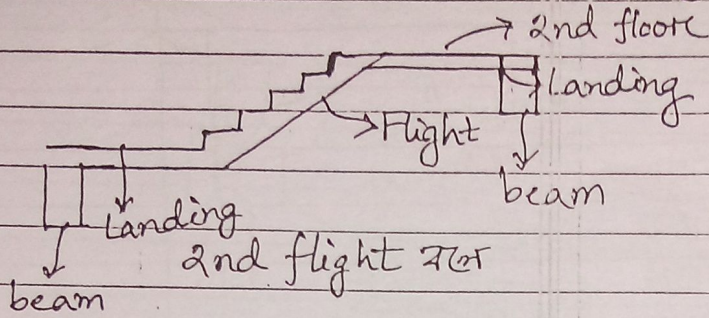 2nd floor
Landing
Flight
beam
Landing
2nd flight বলে
beam